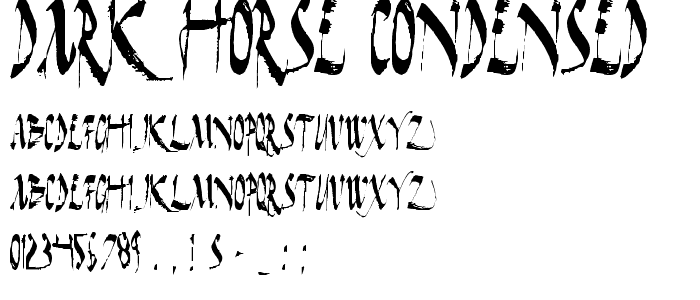 DARK HORSE CONDENSED
ABCDEFGHIJKLMNOPQRSTUVWXYZ
ABCDEFGHIJKLMNOPQRSTUVWXYZ
0123456789 . , ! S - _ : ;